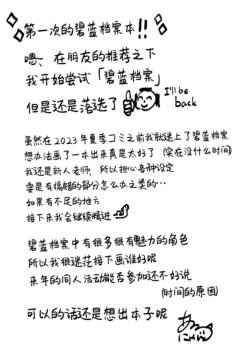 第一次的碧蓝档案本!!
嗯、在朋友的推荐之下
我开始尝试「碧蓝档案」
但是还是落选了
I'll be
back
虽然在2023年夏季コミ之前我就迷上了碧蓝档案
想办法画了一本出来真是太好了(实在没什么时间)
我还是新人老师,所以担心各种设定
要是有搞错的部分怎么办之类的…
如果有不足的地方
接下来我会继续精进
碧蓝档案中有很多很有魅力的角色
所以我很迷茫接下画谁好呢
来年的同人活动能否参加还不好说
(时间的原因)
可以的话还是想出本子呢